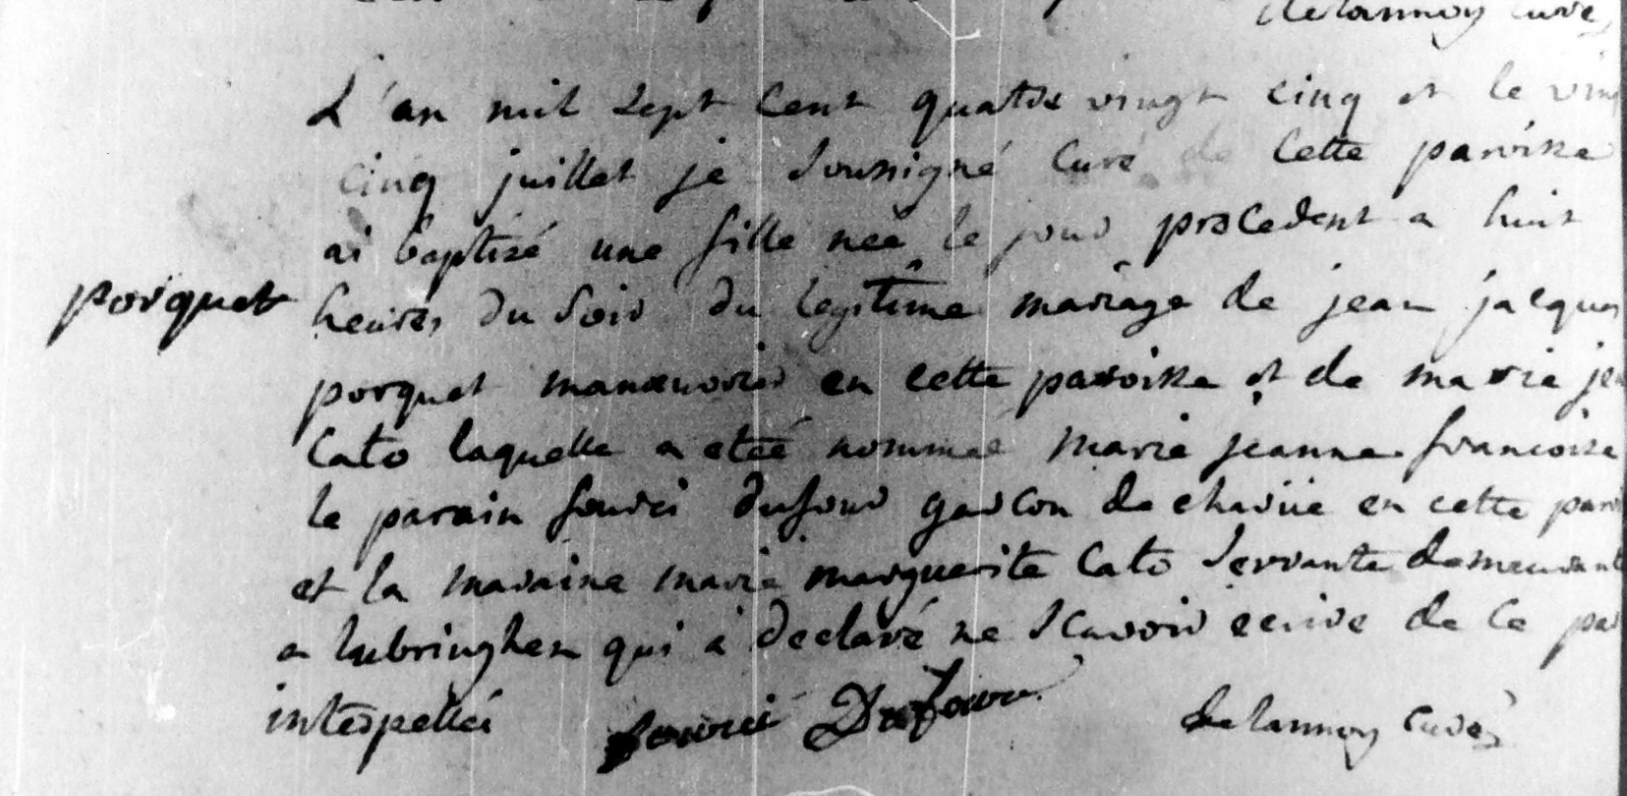 delannoy curé
L'an mil sept cent quatre vingt cinq et le vin
cinq juillet je soussigné curé de cette paroisse
ai baptisé une fille neé le jour précedent a huit
porquet
heures du soir du legitime mariage de jean jacques
porquet manœuvrier en cette paroisse et de marie je
Cato laquelle a eteé nommeé marie jeanne francoise
le parain fourci dufour garcon de charüe en cette paroi
et la maraine marie marguerite Cato servante demeurant
a lubringhen qui a declaré ne scavoir ecrire de ce par
interpellée fourcÿ Dufour delannoy curé